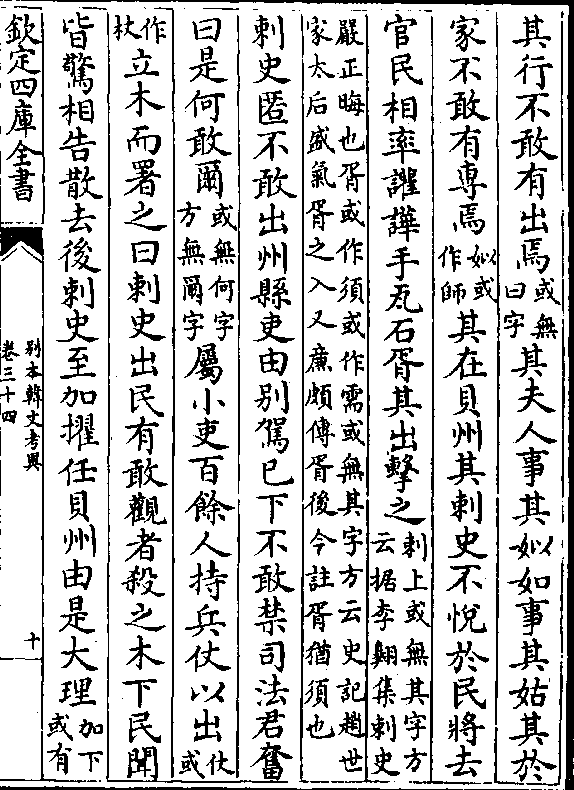 其行不敢有出焉或無曰字其夫人事其姒如事其姑其於
家不敢有專焉姒或作師其在貝州其刺史不悅於民將去
官民相率讙譁手瓦石胥其出擊之刺上或無其字方云据李翺集刺史
嚴正晦也胥或作須或作需或無其字方云史記趙世
家太后盛氣胥之入又廉頗傳胥後今註胥猶須也
刺史匿不敢出州縣吏由别駕已下不敢禁司法君奮
曰是何敢爾或無何字方無爾字屬小吏百餘人持兵仗以出仗或
作杖立木而署之曰刺史出民有敢觀者殺之木下民聞
皆驚相告散去後刺史至加擢任貝州由是大理加下或有
欽定四庫全書
别本韓文考異
卷三十四
十